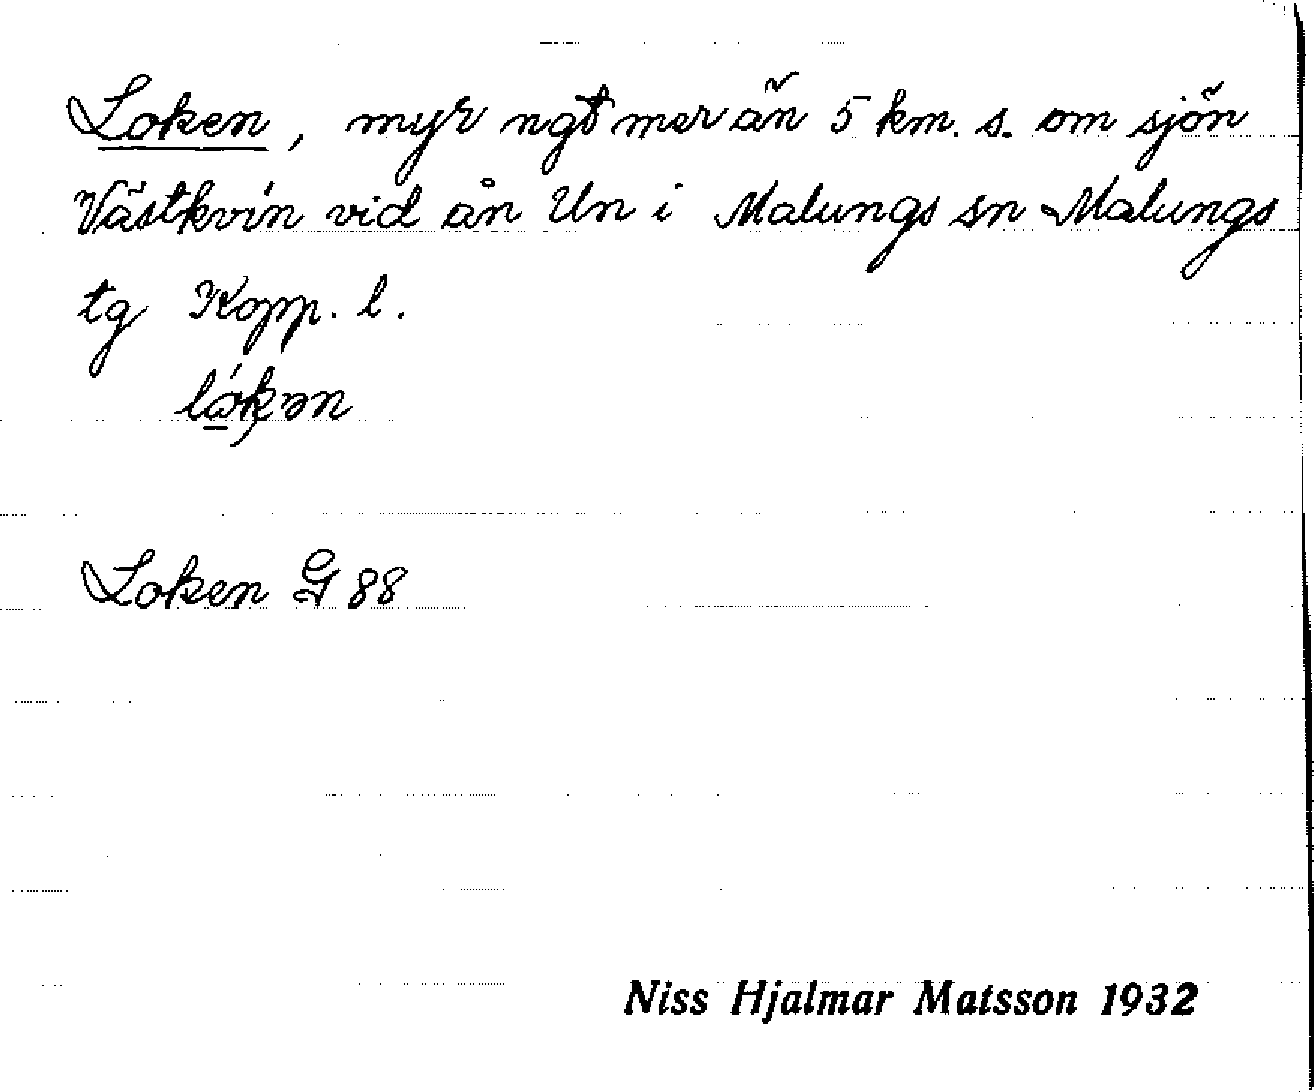 Loken, myr ngt mer än 5 km. s. om sjön
Västkvin vid ån Un i Malungs sn Malungs
tg Kopp. l.
Loken G 88
Niss Hjalmar Matsson 1932